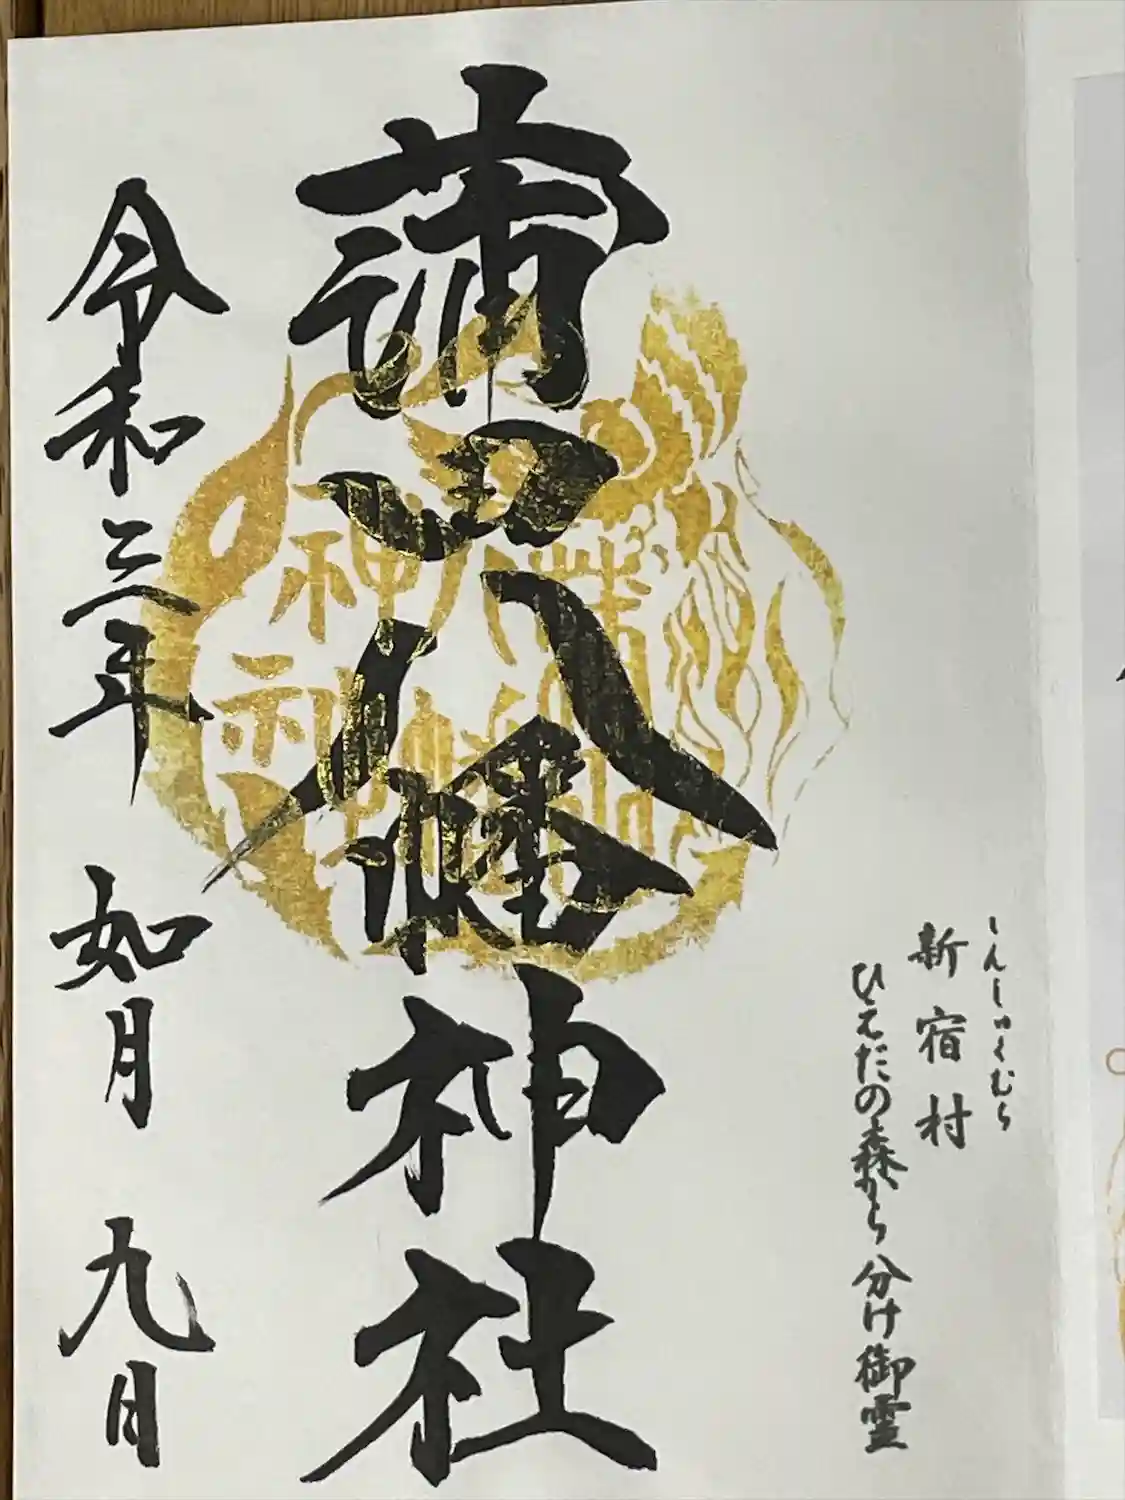 しんしゅくむら
新宿村
ひえだの森から分け御霊
蒲田八幡神社
令和三年 如月 九日